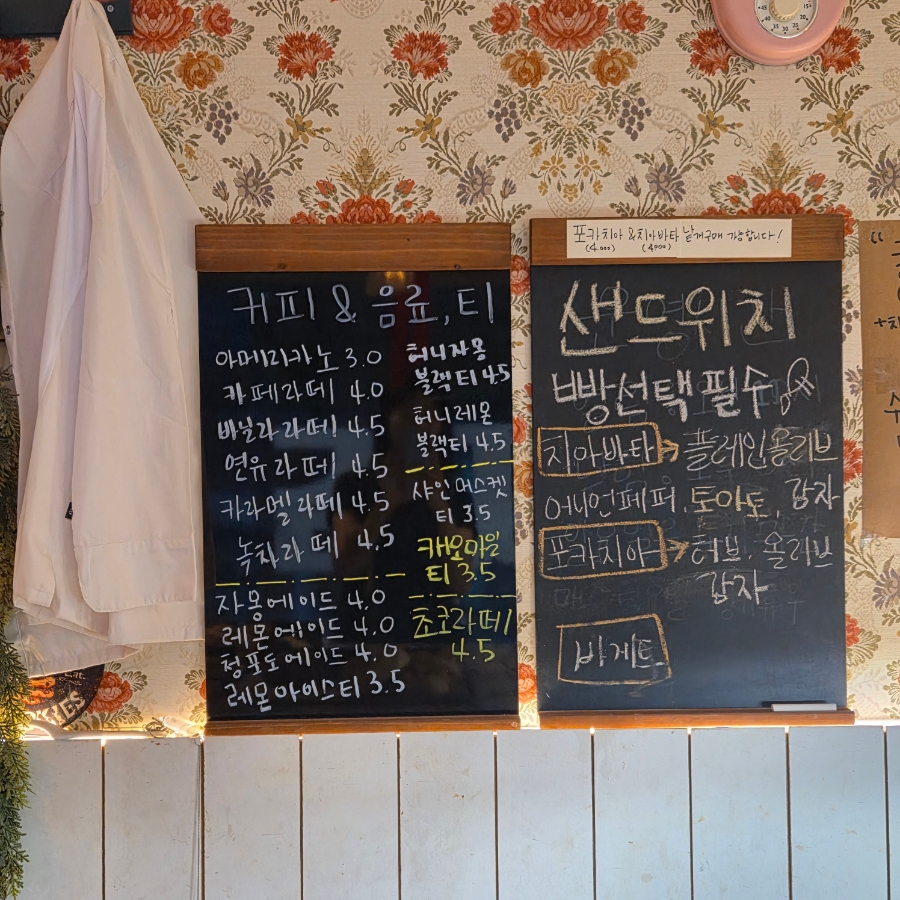 커피 & 음료, 티
아메리카노 3.0
카페라떼 4.0
바닐라라떼 4.5
연유라떼 4.5
카라멜라떼 4.5
녹차라떼 4.5
자몽에이드 4.0
레몬에이드 4.0
청포도에이드 4.0
레몬아이스티 3.5
허니자몽
블랙티 4.5
허니레몬
블랙티 4.5
샤인머스켓
티 3.5
캐모마일
티 3.5
초코라떼
4.5
포카치아 & 치아바타 낱개구매 가능합니다!
(4.000) (4000)
샌드위치
빵선택필수
치아바타 → 플레인올리브
어니언페퍼, 토마토, 감자
포카치아 → 허브, 올리브
감자
바게트